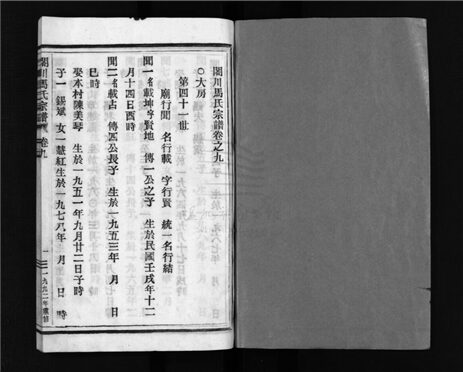 閣川馬氏宗譜卷之九
○大房
第四十一世
廟行聞　名行載　字行賢　統一名行結
聞一名載坤字賢地　傳一公之子　生於民國壬戌年十二
月十四日酉時
聞二名載占　傳四公長子　生於一九五三年　月　日
巳時
娶本村陳美琴　生於一九五一年九月廿二日子時
子一　錫斌　女一　慧紅生於一九七八年　月　日　時
閣川馬氏宗譜　卷九
一
一九九二年重修